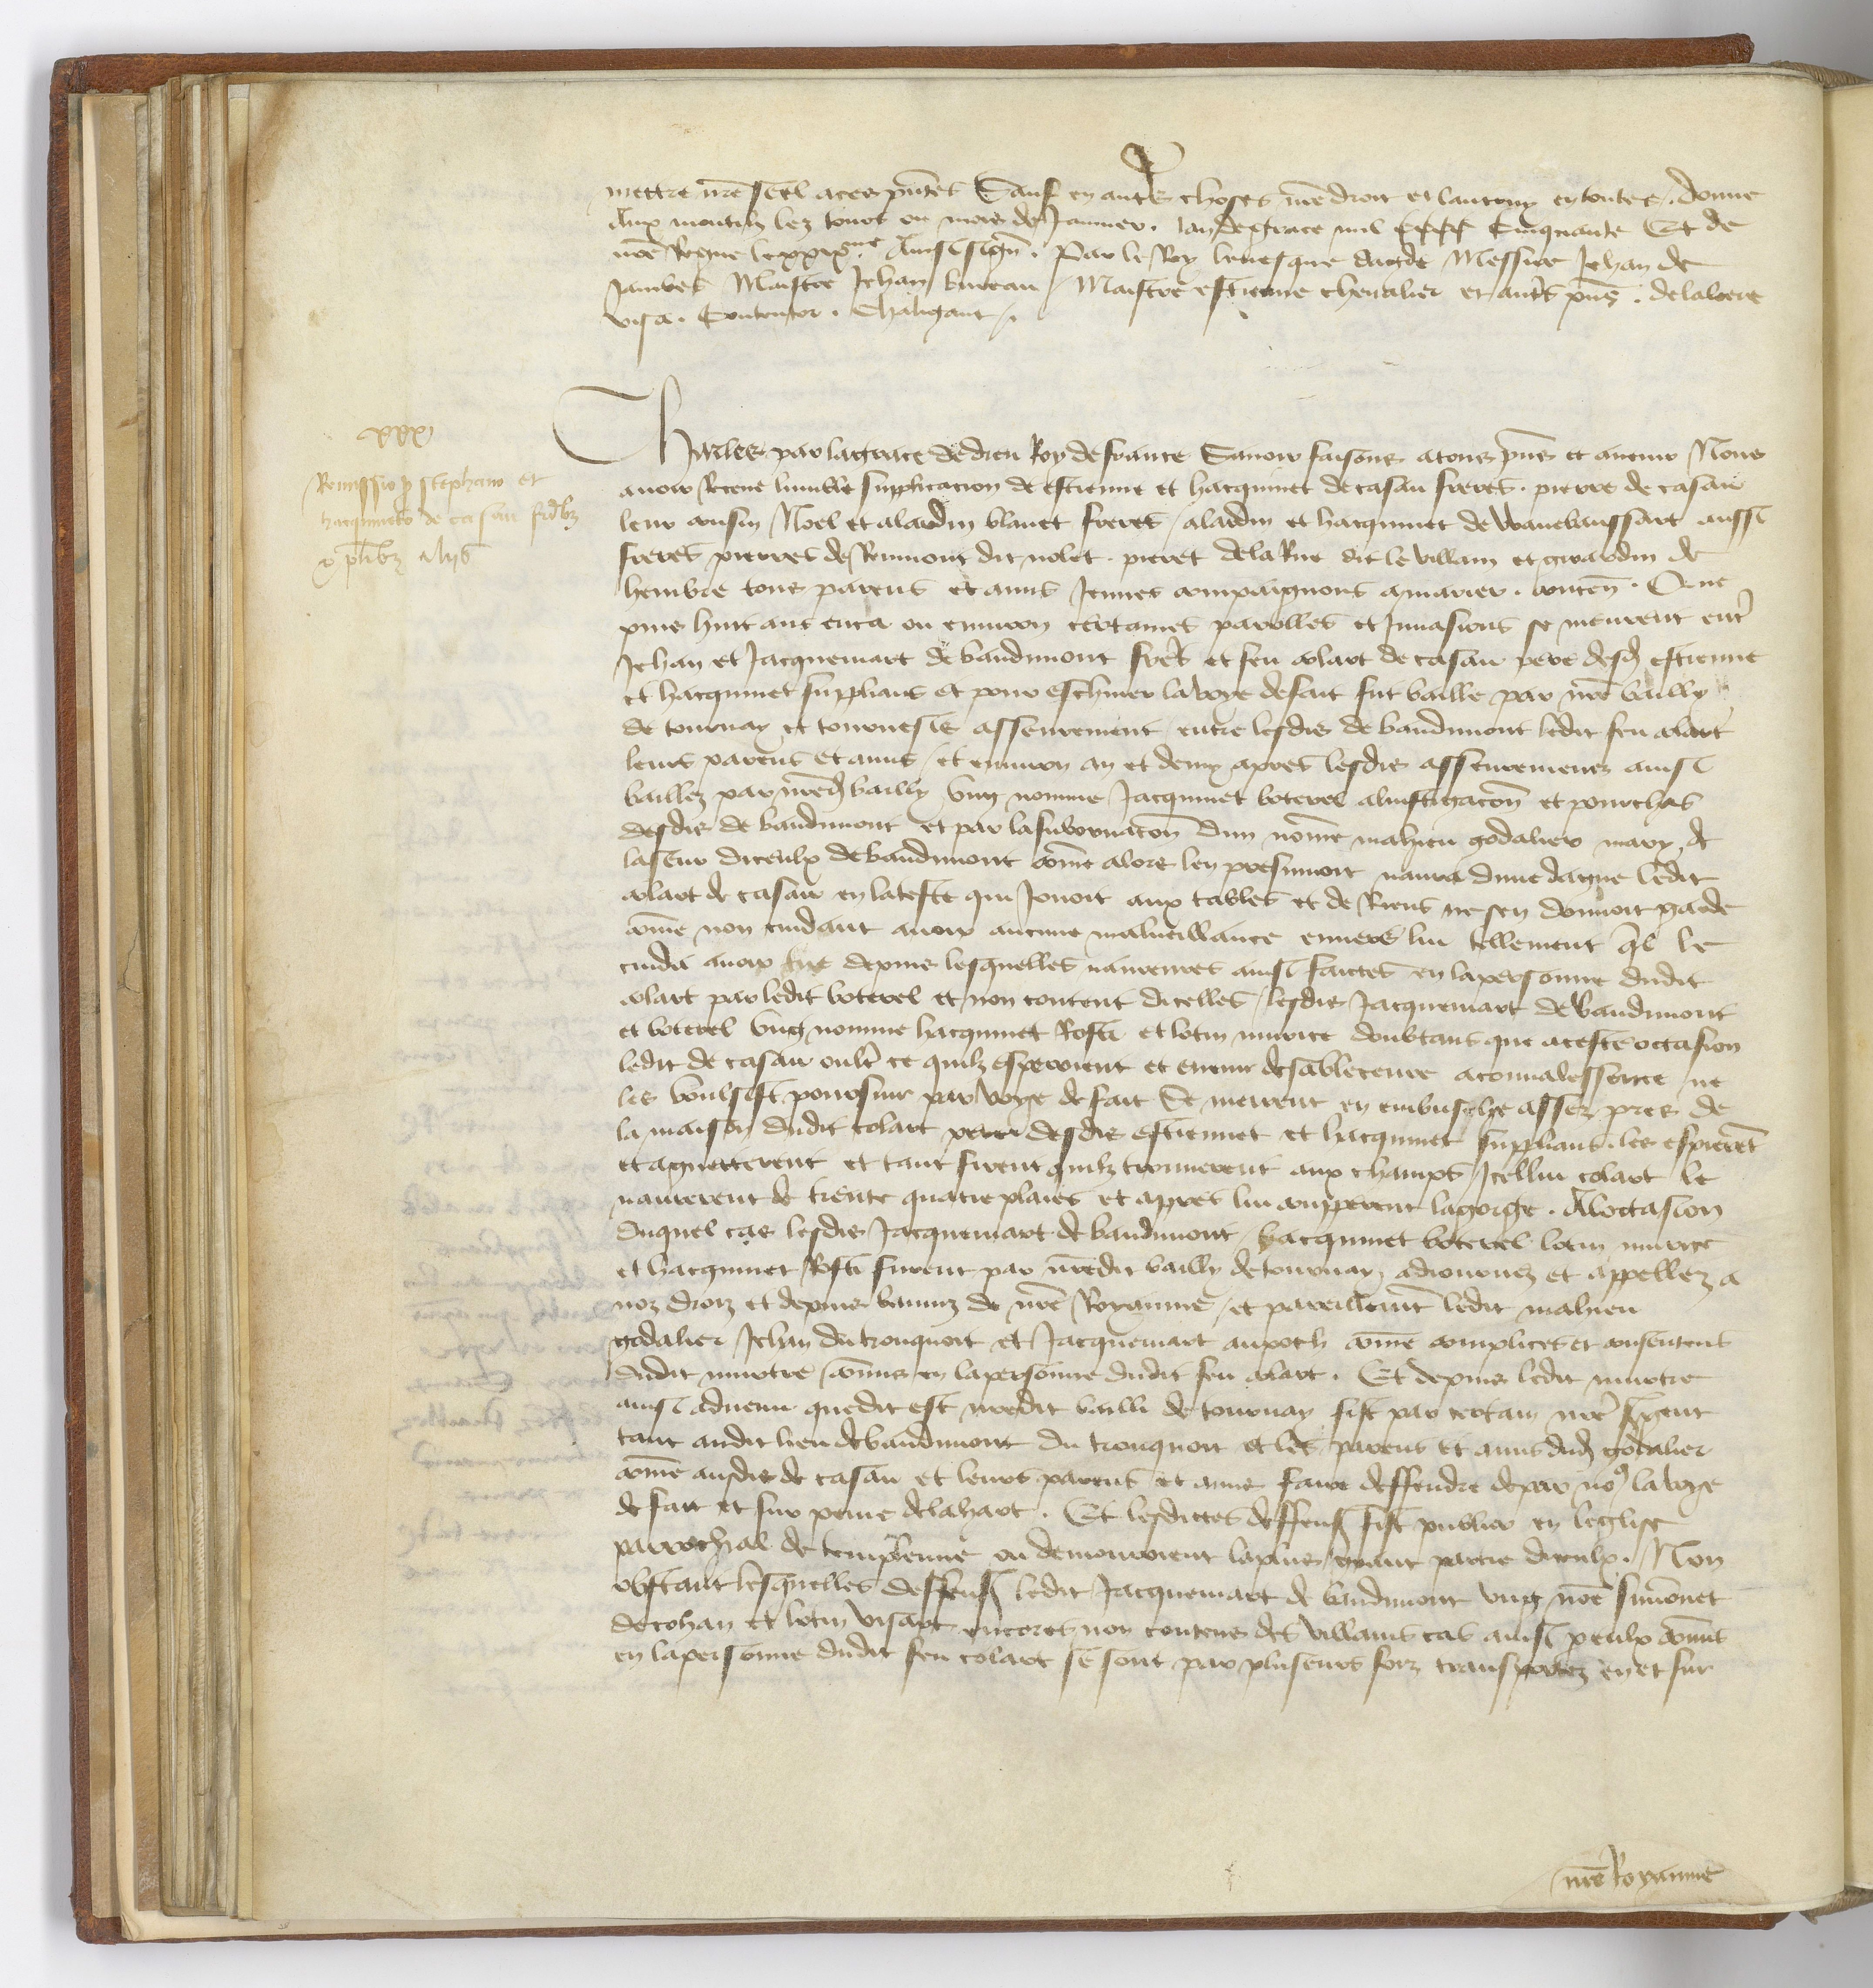 mettre nr̃e seel a ces pn̄tes Sauf en autr̃s choses nr̃e droit et lautruy en toutes. Donne
Aux montilz lez tours ou mois de Januier. lan de grace mil CCCC Cinquante Et de
nr̃e Regne le xxix.me Ainsi signe. Par le Roy leuesque dagde Messire Jehan de
Jambes Maistre Jehan bureau / Maistre estienne cheualier et autr̃s pn̄s. delaloere
visa. Contentor. Chaligaut /.
xxx
Remissio p stephano et
hacquineto de casau frībȝ
et plībȝ aliis
Charles par la grace de dieu Roy de france Sauoir faisons a tous pn̄s et auenir Nous
auoir Receue humble supplicacion de estienne et hacquinet de casau freres. pierre de casau
leur cousin Noel et alardin blauet freres / alardin et hacquinet de Wanebaussart aussi
freres pierres de Rinmont dit nolet. pieret dela Rue dit le villain et girardin de
hembre tous parens et amis Jeunes compaignons a marier. conten̄. Que
puis huit ans enca ou enuiron certaines parolles et Inuasions se meurent entr̃
Jehan et Jacquemart de baudimont frer̃s et feu colart de casau pere desd estienne
et hacquinet supplians et pour escheuer la voye de fait fut baille par nr̃e bailly
de tournay et tournesis asseurement entre lesdis de baudimont ledit feu colart
leurs parens et amis / et enuiron an et demy apres lesdis asseuremens ainsi
baillez par nr̃ed bailly Vng nomme Jacquinet boterel a linstigacōn et pourchas
desdis de baudimont et par la subornacōn dun nōme mahieu godalier mary de
la seur diceulx de baudimont cōme alors len presumoit naura dune dague ledit
colart de casau en la teste qui Jouoit aux tables et de Riens ne sen donnoit garde
cōme non cuidant auoir aucune malueillance enuers lui tellement ql̃ le
cuida auoir tue depuis lesquelles naureures ainsi faictes en la personne dudit
colart par ledit boterel et non content dicelles / lesdis Jacquemart de baudimont
et boterel Vng nomme hacquinet Rosti et lotin murice doubtans que a ceste occasion
ledit de casau oultr̃ ce quilz esperoient et enenir de sa bleceure a conualessence ne
les voulsist poursuir par voye de fait Se meirent en embusche assez pres de
la maison dudit colart pere desdis estiennet et hacquinet supplians. les espierēt
et aguetterent et tant firent quilz trouuerent aux champs Icellui colart le
naurerent de trente quatre plaies et apres lui coupperent la gorge. A loccasion
duquel cas lesdis Jacquemart de baudimont / hacquinet boterel lotin murice
et hacquinet Rosti furent par nr̃edit bailly de tournay adiournez et appellez a
noz droiz et depuis bannz de nr̃e Royaume / et pareillemt̃ ledit mahieu
godalier Jehan du tronquoit et Jacquemart aupoch cōme complices et consentens
dudit murtre cōmis en la personne dudit feu colart. Et depuis ledit murtre
ainsi aduenu que dit est nr̃edit bailli de tournay fist par certain nr̃e sergent
tant audit lieu de baudimont du tronquoit et les parens et amis dud godalier
cōme ausdis de casau et leurs parens et amis faire deffendre depar no9 la voye
de fait et sur peine de la hart. Et lesdictes deffens̄ fist publier en leglise
parrochial de templenne ou demouroient la plus grant partie diceulx. Non
obstant lesquelles deffens̄ ledit Jacquemart de baudimont vng nōe simonnet
de cohan et lotin visart encores non contens des villains cas ainsi p eulx cōmis
en la personne dudit feu colart se sont par pluseurs foiz transportez en et sur
nr̃e Royaume